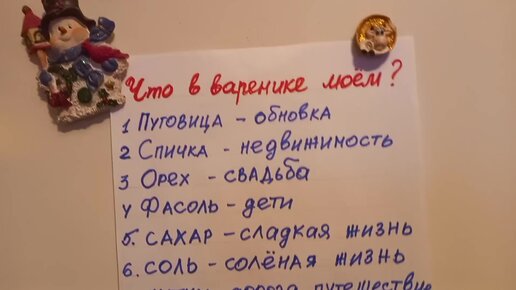 Что в варенике моём?
1 Пуговица - обновка
2 Спичка - недвижимость
3 Орех - свадьба
4 Фасоль - дети
5. Сахар - сладкая жизнь
6. Соль - солёная жизнь
дорога путешествие